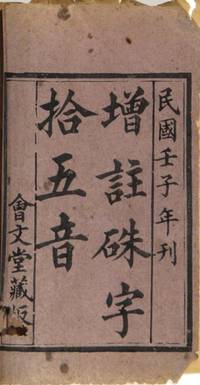 民國壬子年刊
增註硃字
拾五音
會文堂藏板